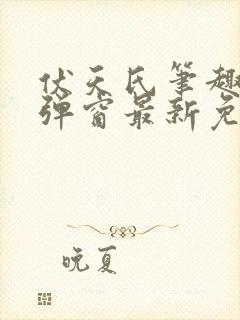 伏天氏笔趣
弹窗最新免
晚夏